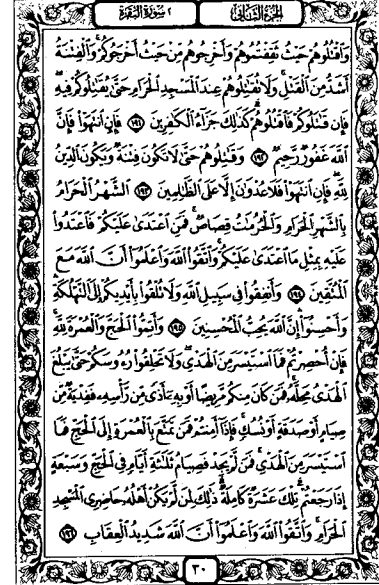 الجزء الثاني ٢ سورة البقرة
وَاقْتُلُوهُمْ حَيْثُ ثَقِفْتُمُوهُمْ وَأَخْرِجُوهُمْ مِنْ حَيْثُ أَخْرَجُوكُمْ وَالْفِتْنَةُ
أَشَدُّ مِنَ الْقَتْلِ وَلَا تُقَاتِلُوهُمْ عِنْدَ الْمَسْجِدِ الْحَرَامِ حَتَّىٰ يُقَاتِلُوكُمْ فِيهِ
فَإِنْ قَاتَلُوكُمْ فَاقْتُلُوهُمْ كَذَٰلِكَ جَزَاءُ الْكَافِرِينَ ١٩١ فَإِنِ انْتَهَوْا فَإِنَّ
اللَّهَ غَفُورٌ رَحِيمٌ ١٩٢ وَقَاتِلُوهُمْ حَتَّىٰ لَا تَكُونَ فِتْنَةٌ وَيَكُونَ الدِّينُ
لِلَّهِ فَإِنِ انْتَهَوْا فَلَا عُدْوَانَ إِلَّا عَلَى الظَّالِمِينَ ١٩٣ الشَّهْرُ الْحَرَامُ
بِالشَّهْرِ الْحَرَامِ وَالْحُرُمَاتُ قِصَاصٌ فَمَنِ اعْتَدَىٰ عَلَيْكُمْ فَاعْتَدُوا
عَلَيْهِ بِمِثْلِ مَا اعْتَدَىٰ عَلَيْكُمْ وَاتَّقُوا اللَّهَ وَاعْلَمُوا أَنَّ اللَّهَ مَعَ
الْمُتَّقِينَ ١٩٤ وَأَنْفِقُوا فِي سَبِيلِ اللَّهِ وَلَا تُلْقُوا بِأَيْدِيكُمْ إِلَى التَّهْلُكَةِ
وَأَحْسِنُوا إِنَّ اللَّهَ يُحِبُّ الْمُحْسِنِينَ ١٩٥ وَأَتِمُّوا الْحَجَّ وَالْعُمْرَةَ لِلَّهِ
فَإِنْ أُحْصِرْتُمْ فَمَا اسْتَيْسَرَ مِنَ الْهَدْيِ وَلَا تَحْلِقُوا رُءُوسَكُمْ حَتَّىٰ يَبْلُغَ
الْهَدْيُ مَحِلَّهُ فَمَنْ كَانَ مِنْكُمْ مَرِيضًا أَوْ بِهِ أَذًى مِنْ رَأْسِهِ فَفِدْيَةٌ مِنْ
صِيَامٍ أَوْ صَدَقَةٍ أَوْ نُسُكٍ فَإِذَا أَمِنْتُمْ فَمَنْ تَمَتَّعَ بِالْعُمْرَةِ إِلَى الْحَجِّ فَمَا
اسْتَيْسَرَ مِنَ الْهَدْيِ فَمَنْ لَمْ يَجِدْ فَصِيَامُ ثَلَاثَةِ أَيَّامٍ فِي الْحَجِّ وَسَبْعَةٍ
إِذَا رَجَعْتُمْ تِلْكَ عَشَرَةٌ كَامِلَةٌ ذَٰلِكَ لِمَنْ لَمْ يَكُنْ أَهْلُهُ حَاضِرِي الْمَسْجِدِ
الْحَرَامِ وَاتَّقُوا اللَّهَ وَاعْلَمُوا أَنَّ اللَّهَ شَدِيدُ الْعِقَابِ ١٩٦
٣٠